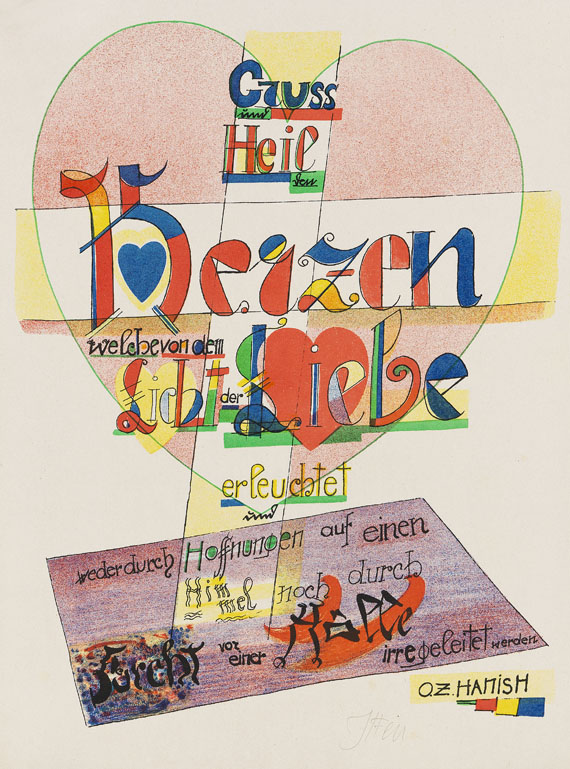 Gruss
und
Heil
den
Herzen
welche von dem
Licht der Liebe
erleuchtet
und
weder durch Hoffnungen auf einen
Himmel noch durch
Furcht vor einer Hölle
irregeleitet werden
O.Z. HANISH
Itten